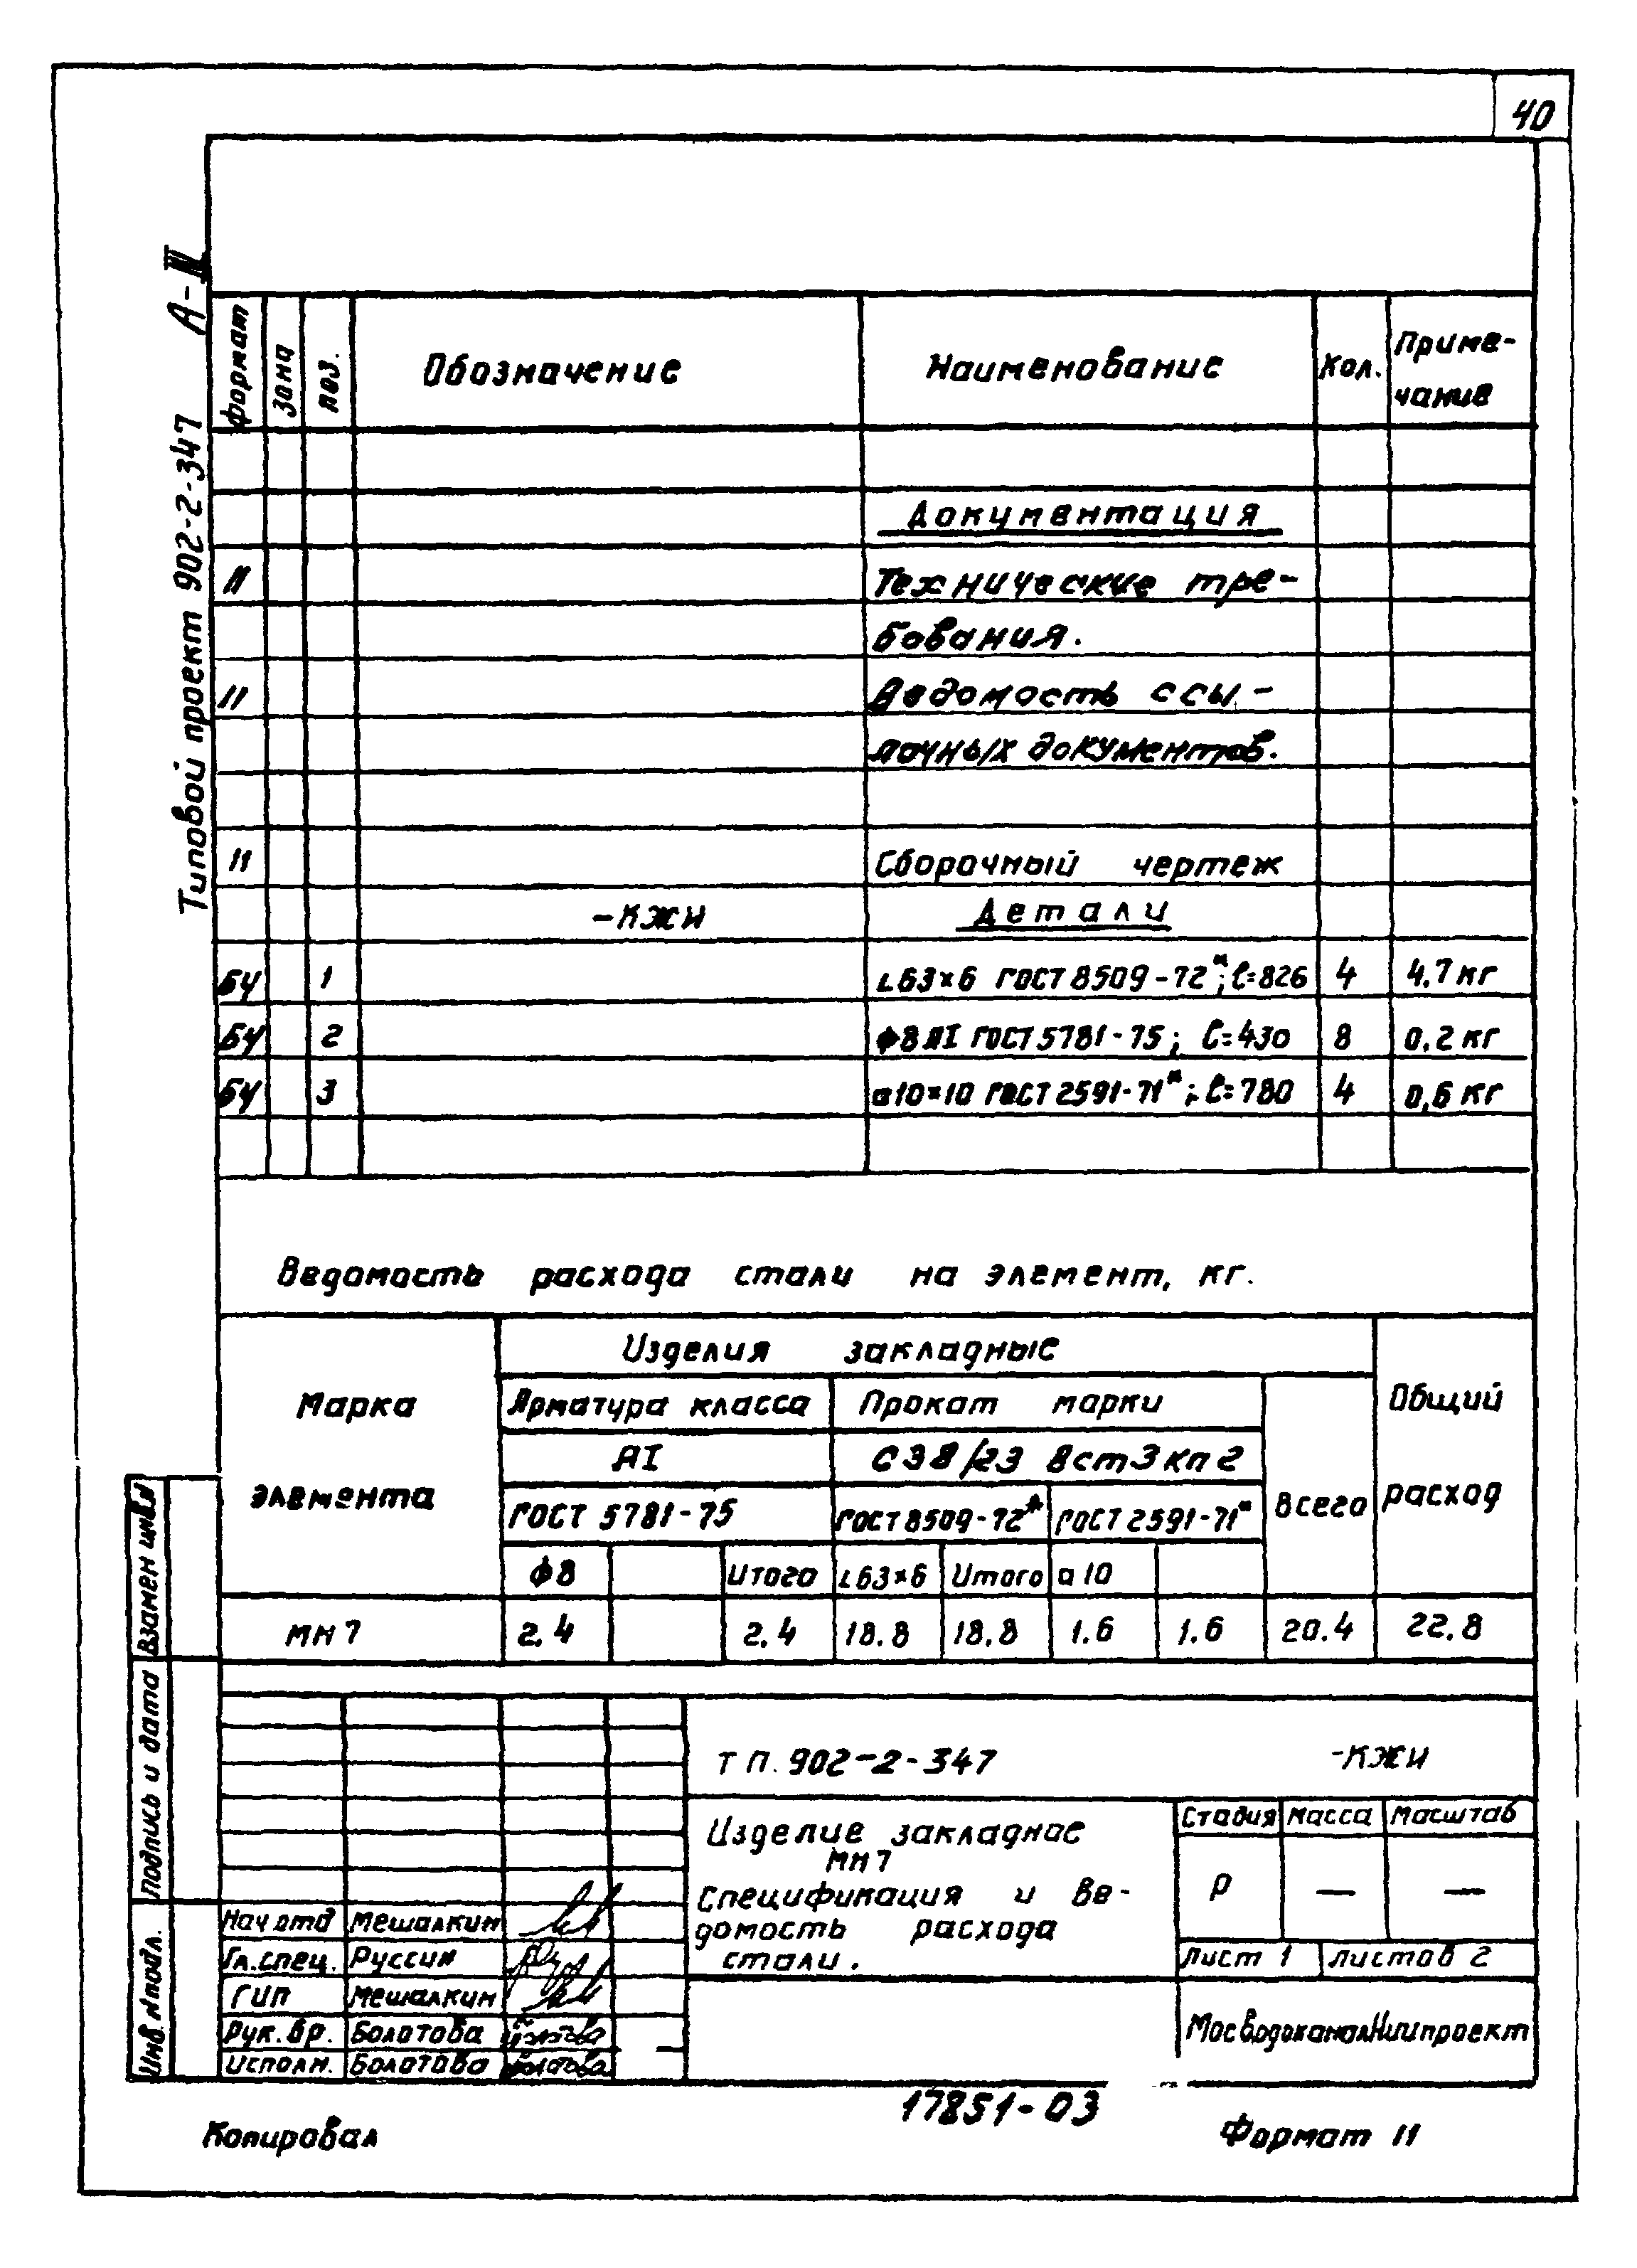 40
Типовой проект 902-2-347 А-III
Формат Зона Поз. Обозначение Наименование Кол. Приме-
чание
Документация
11 Технические тре-
бования.
11 Ведомость ссы-
лочных документов.
11 Сборочный чертеж
-КЖИ Детали
БЧ 1 L63×6 ГОСТ 8509-72*; ℓ=826 4 4.7 кг
БЧ 2 ф8 АI ГОСТ 5781-75; ℓ=430 8 0.2 кг
БЧ 3 □10×10 ГОСТ 2591-71*; ℓ=780 4 0,6 кг
Ведомость расхода стали на элемент, кг.
Марка
элемента
Изделия закладные
Общий
расход
Арматура класса Прокат марки Всего
АI С38/23 Вст3кп2
ГОСТ 5781-75 ГОСТ 8509-72* ГОСТ 2591-71*
ф8 Итого L63×6 Итого □10
МН7 2.4 2.4 18.8 18.8 1.6 1.6 20.4 22.8
Взамен инв.№
Подпись и дата
Инв.№подл.
Т П. 902-2-347 -КЖИ
Изделие закладное
МН7
Спецификация и ве-
домость расхода
стали.
Стадия Масса Масштаб
Р — —
Лист 1 Листов 2
Нач отд Мешалкин
Гл.спец. Руссин
ГИП Мешалкин
Рук.бр. Болотова Болотова
Исполн. Болотова Болотова
МосводоканалНИИпроект
17851-03
Копировал Формат 11